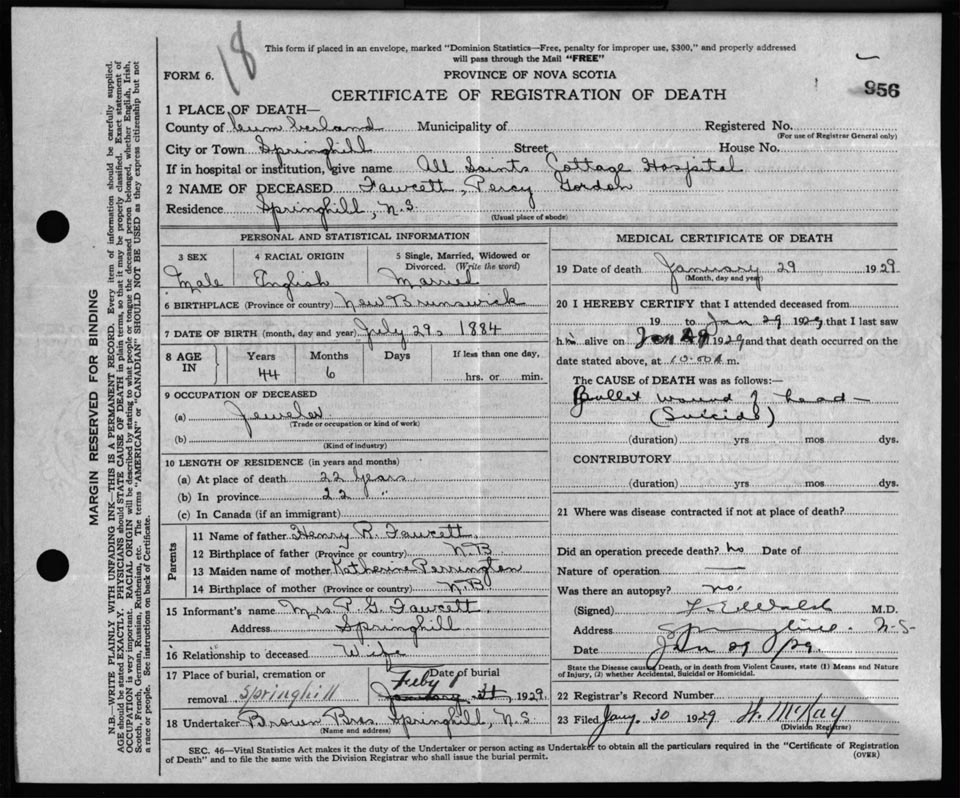 18
This form if placed in an envelope, marked "Dominion Statistics—Free, penalty for improper use, $300," and properly addressed
will pass through the Mail "FREE"
FORM 6.
PROVINCE OF NOVA SCOTIA
956
CERTIFICATE OF REGISTRATION OF DEATH
1 PLACE OF DEATH—
County of Cumberland Municipality of Registered No.
(For use of Registrar General only)
City or Town Springhill Street House No.
If in hospital or institution, give name All Saints Cottage Hospital
2 NAME OF DECEASED Fawcett, Percy Gordon
Residence Springhill, N.S.
(Usual place of abode)
PERSONAL AND STATISTICAL INFORMATION
3 SEX 4 RACIAL ORIGIN 5 Single, Married, Widowed or
Divorced. (Write the word)
Male English Married
6 BIRTHPLACE (Province or country) New Brunswick
7 DATE OF BIRTH (month, day and year) July 29, 1884
8 AGE IN Years Months Days If less than one day,
44 6 hrs. or min.
9 OCCUPATION OF DECEASED
(a) Jeweler
(Trade or occupation or kind of work)
(b)
(Kind of industry)
10 LENGTH OF RESIDENCE (in years and months)
(a) At place of death 22 years
(b) In province 22 "
(c) In Canada (if an immigrant)
Parents
11 Name of father Henry R. Fawcett
12 Birthplace of father (Province or country) N.B.
13 Maiden name of mother Katherine Perrington
14 Birthplace of mother (Province or country) N.B.
15 Informant's name Mrs. P. G. Fawcett
Address Springhill
16 Relationship to deceased Wife
17 Place of burial, cremation or Date of burial
removal Springhill Feby January 1929
18 Undertaker Brown Bros. Springhill, N.S
(Name and address)
MEDICAL CERTIFICATE OF DEATH
19 Date of death January 29 1929
(Month, day and year)
20 I HEREBY CERTIFY that I attended deceased from
19 to Jan 29 1929 that I last saw
him alive on Jan 29 1929 and that death occurred on the
date stated above, at 10.00 m.
The CAUSE of DEATH was as follows:—
Bullet wound of head—
(Suicide)
(duration) yrs mos dys.
CONTRIBUTORY
(duration) yrs mos dys.
21 Where was disease contracted if not at place of death?
Did an operation precede death? No Date of
Nature of operation —
Was there an autopsy? no.
(Signed) M.D.
Address Springhill N-S-
Date Jan 29 / 29
State the Disease causing Death, or in death from Violent Causes, state (1) Means and Nature
of Injury, (2) whether Accidental, Suicidal or Homicidal.
22 Registrar's Record Number
23 Filed Jany. 30 1929 H. McKay
(Division Registrar)
SEC. 46—Vital Statistics Act makes it the duty of the Undertaker or person acting as Undertaker to obtain all the particulars required in the "Certificate of Registration
of Death" and to file the same with the Division Registrar who shall issue the burial permit.
(OVER)
MARGIN RESERVED FOR BINDING
N.B.—WRITE PLAINLY WITH UNFADING INK—THIS IS A PERMANENT RECORD. Every item of information should be carefully supplied.
AGE should be stated EXACTLY. PHYSICIANS should STATE CAUSE OF DEATH in plain terms, so that it may be properly classified. Exact statement of
OCCUPATION is very important. RACIAL ORIGIN will be described by stating to what people or tongue the deceased person belonged, whether English, Irish,
Scotch, French, German, Russian, Ruthenian, etc. The terms "AMERICAN" or "CANADIAN" SHOULD NOT BE USED as they express citizenship but not
a race or people. See instructions on back of Certificate.